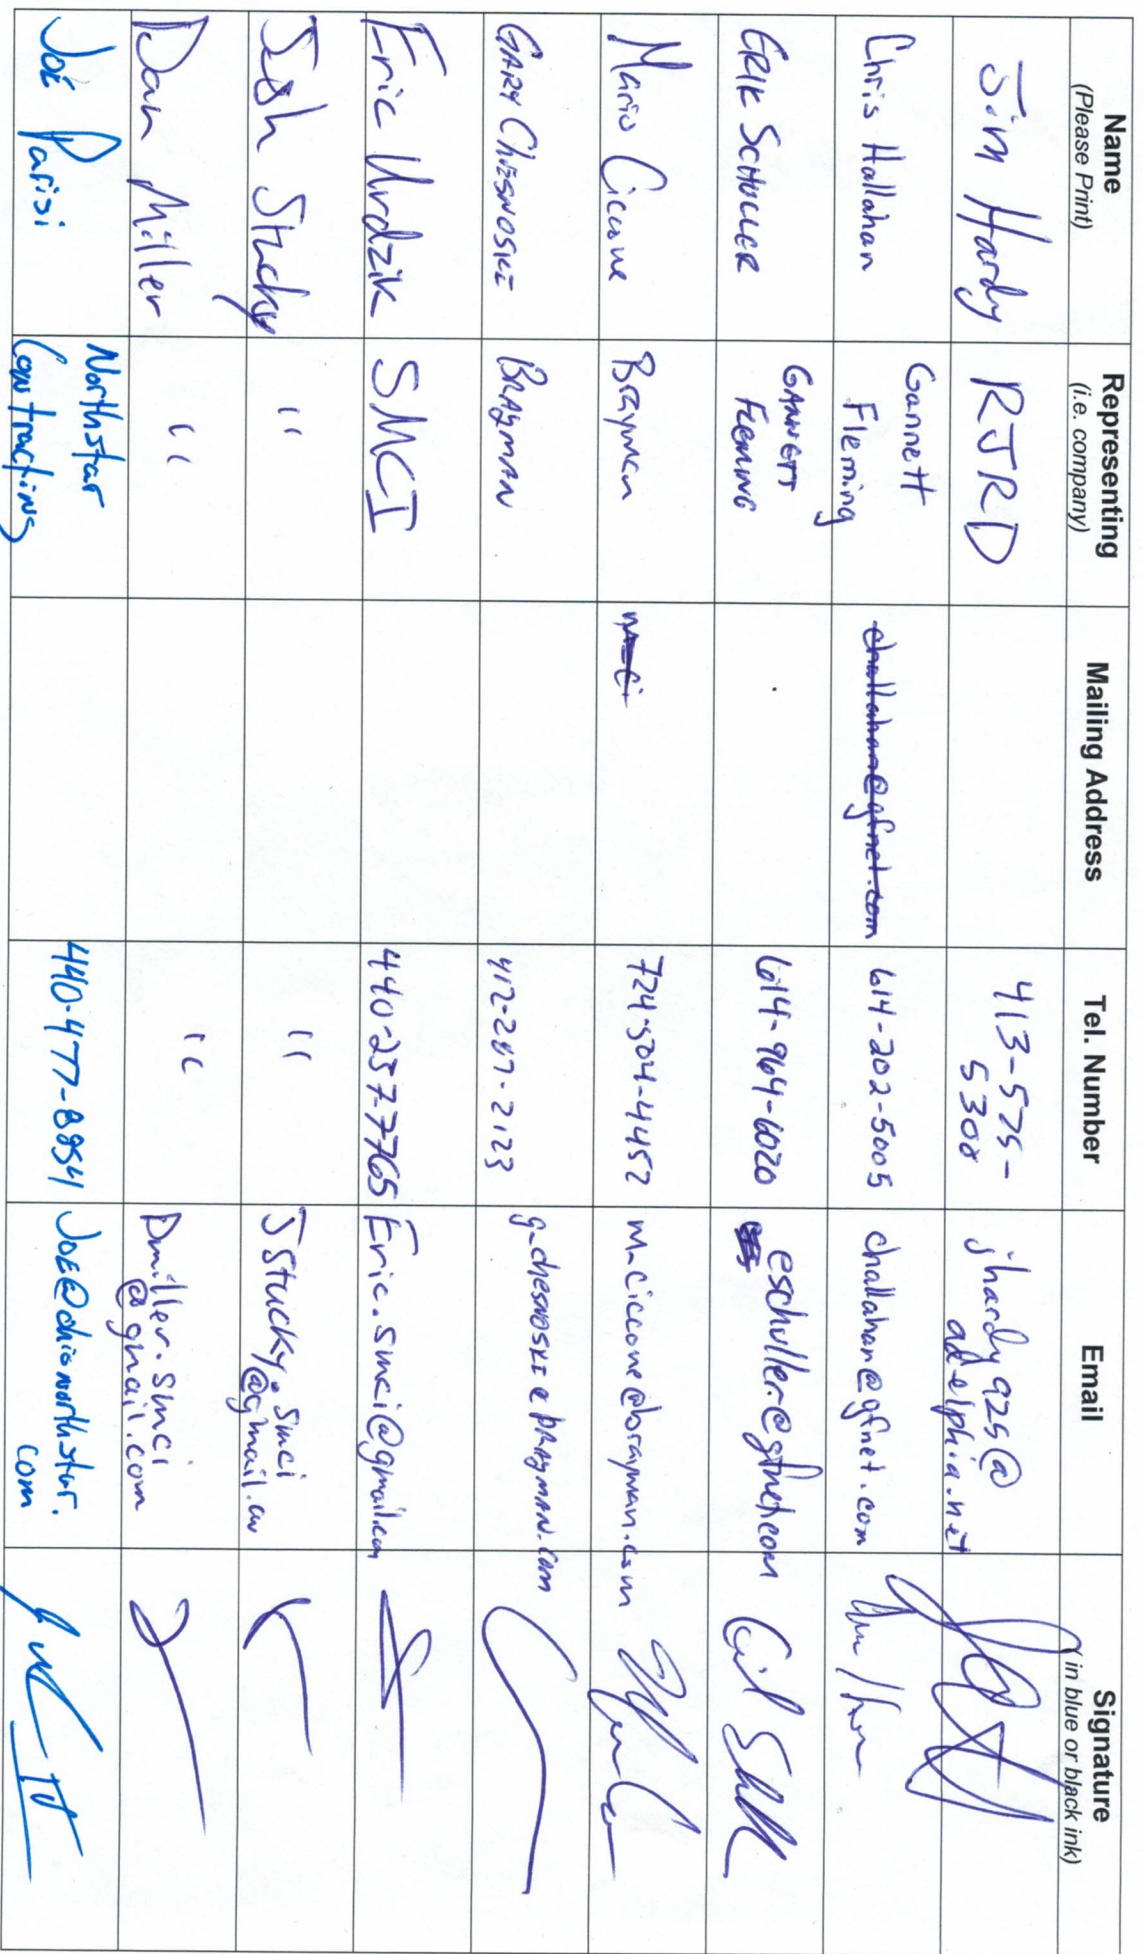 Name
(Please Print)
Representing
(i.e. company)
Mailing Address
Tel. Number
Email
Signature
(in blue or black ink)
Jim Hardy
RJRD
413-575-
5300
jhardy925@
adelphia.net
Chris Hallahan
Gannett
Fleming
challahan@gfnet.com
614-202-5005
challahan@gfnet.com
ERIK SCHULLER
GANNETT
FLEMING
614-964-6020
eschuller@gfnet.com
Mario Ciccone
Brayman
724-504-4452
m_ciccone@brayman.com
GARY CHESNOSKI
BRAYMAN
412-287-2123
g_chesnoski@brayman.com
Eric Urdzik
SMCI
440-257-7765
Eric.smci@gmail.com
Josh Stucky
"
"
JStucky.smci
@gmail.com
Dan Miller
"
"
Dmiller.smci
@gmail.com
JOE Parisi
Northstar
Contracting
440-477-8854
JOE@ohionorthstar.
com